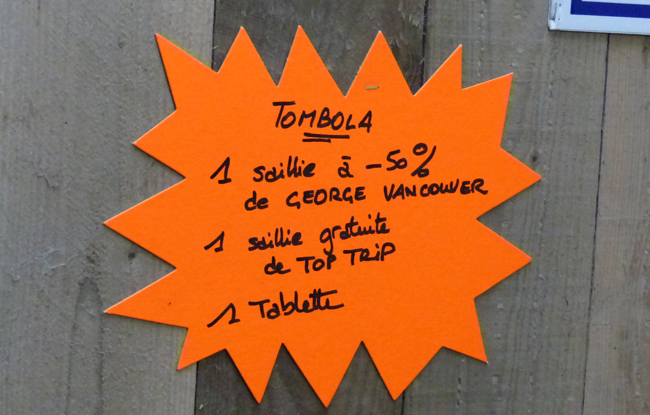 TOMBOLA
1 saillie à -50%
de GEORGE VANCOUVER
1 saillie gratuite
de TOP TRIP
1 Tablette